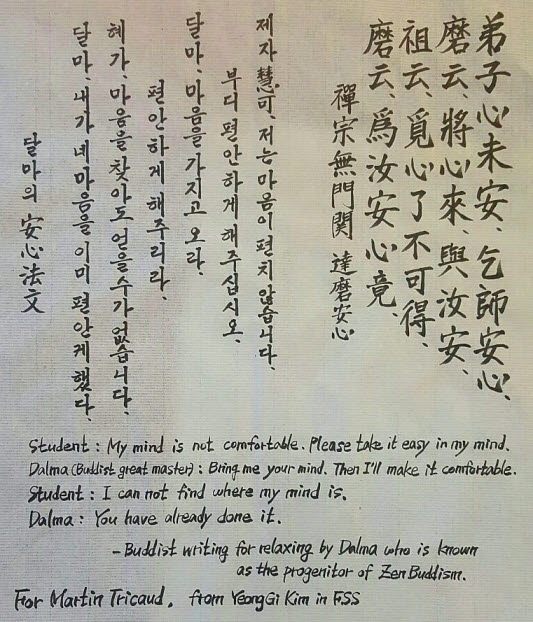 弟子心未安、乞師安心、
磨云、將心來、與汝安、
祖云、覓心了不可得、
磨云、爲汝安心竟、
禪宗無門関 達磨安心
제자 慧可, 저는 마음이 편치 않습니다.
부디 편안하게 해주십시오.
달마, 마음을 가지고 오라.
편안하게 해주리라.
혜가, 마음을 찾아도 얻을 수가 없습니다.
달마, 내가 네 마음을 이미 편안케 했다.
달마의 安心法文
Student : My mind is not comfortable. Please take it easy in my mind.
Dalma (Buddist great master) : Bring me your mind. Then I'll make it comfortable.
Student : I can not find where my mind is.
Dalma : You have already done it.
- Buddist writing for relaxing by Dalma who is known
as the progenitor of Zen Buddism.
For Martin Tricaud, from YeongGi Kim in FSS